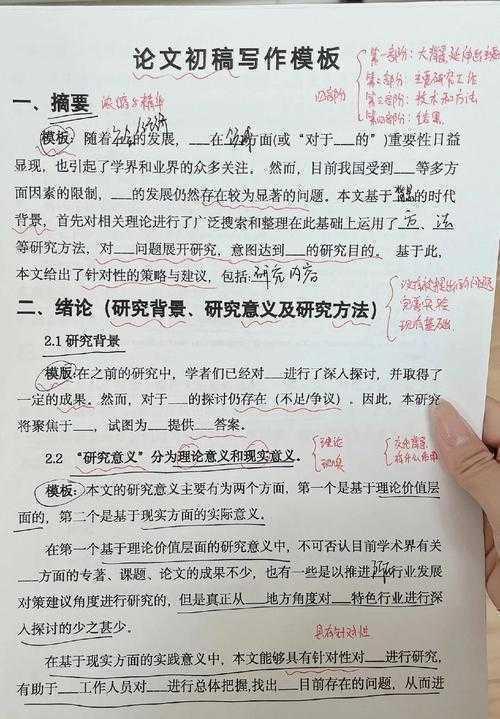 论文初稿写作模板
第一部分：大背景
第二部分：主要研究工作
第三部分：技术和方法
第四部分：结果
四部分
一、摘要 浓缩与精华
模板：随着社会经济的发展，___在___方面(或“对于___的”)重要性日益
显现，也引起了学界和业界的众多关注。然而，目前我国受到___等多方
面因素的限制，___的发展仍然存在较为显著的问题。本文基于___的时代
背景，首先对相关理论进行了广泛搜索和整理在此基础上运用了方、法
等研究方法，对___问题展开研究，意图达到___的研究目的。基于此，
本文给出了针对性的策略与建议，包括：研究内容
二、绪论（研究背景、研究意义及研究方法）
完善实验
现有基础
2.1 研究背景
模版：在之前的研究中，学者们已经对___进行了深入探讨，并取得了
一定的成果。然而，对于___的探讨仍存在（不足/争议）。因此，本研究
将聚焦于___，试图为___提供___答案。
2.2 “研究意义”分为理论意义和现实意义。
理论
现实
模板：本文的研究意义主要有为两个方面，第一个是基于理论价值层
面的，第二个是基于现实方面的实际意义。
在第一个基于理论价值层面的研究意义中，不可否认目前学术界有关
___方面的专著、课题、论文的成果不少，也有一些是以推进___行业发展
对策建议角度进行研究的，但是真正从___地方角度对___特色行业进行深
入探讨的少之甚少。
具有针对性
在基于现实方面的实践意义中，本文能够具有针对性对___进行研究，
有助于___工作人员对___进行总体把握,找出___目前存在的问题，从而进